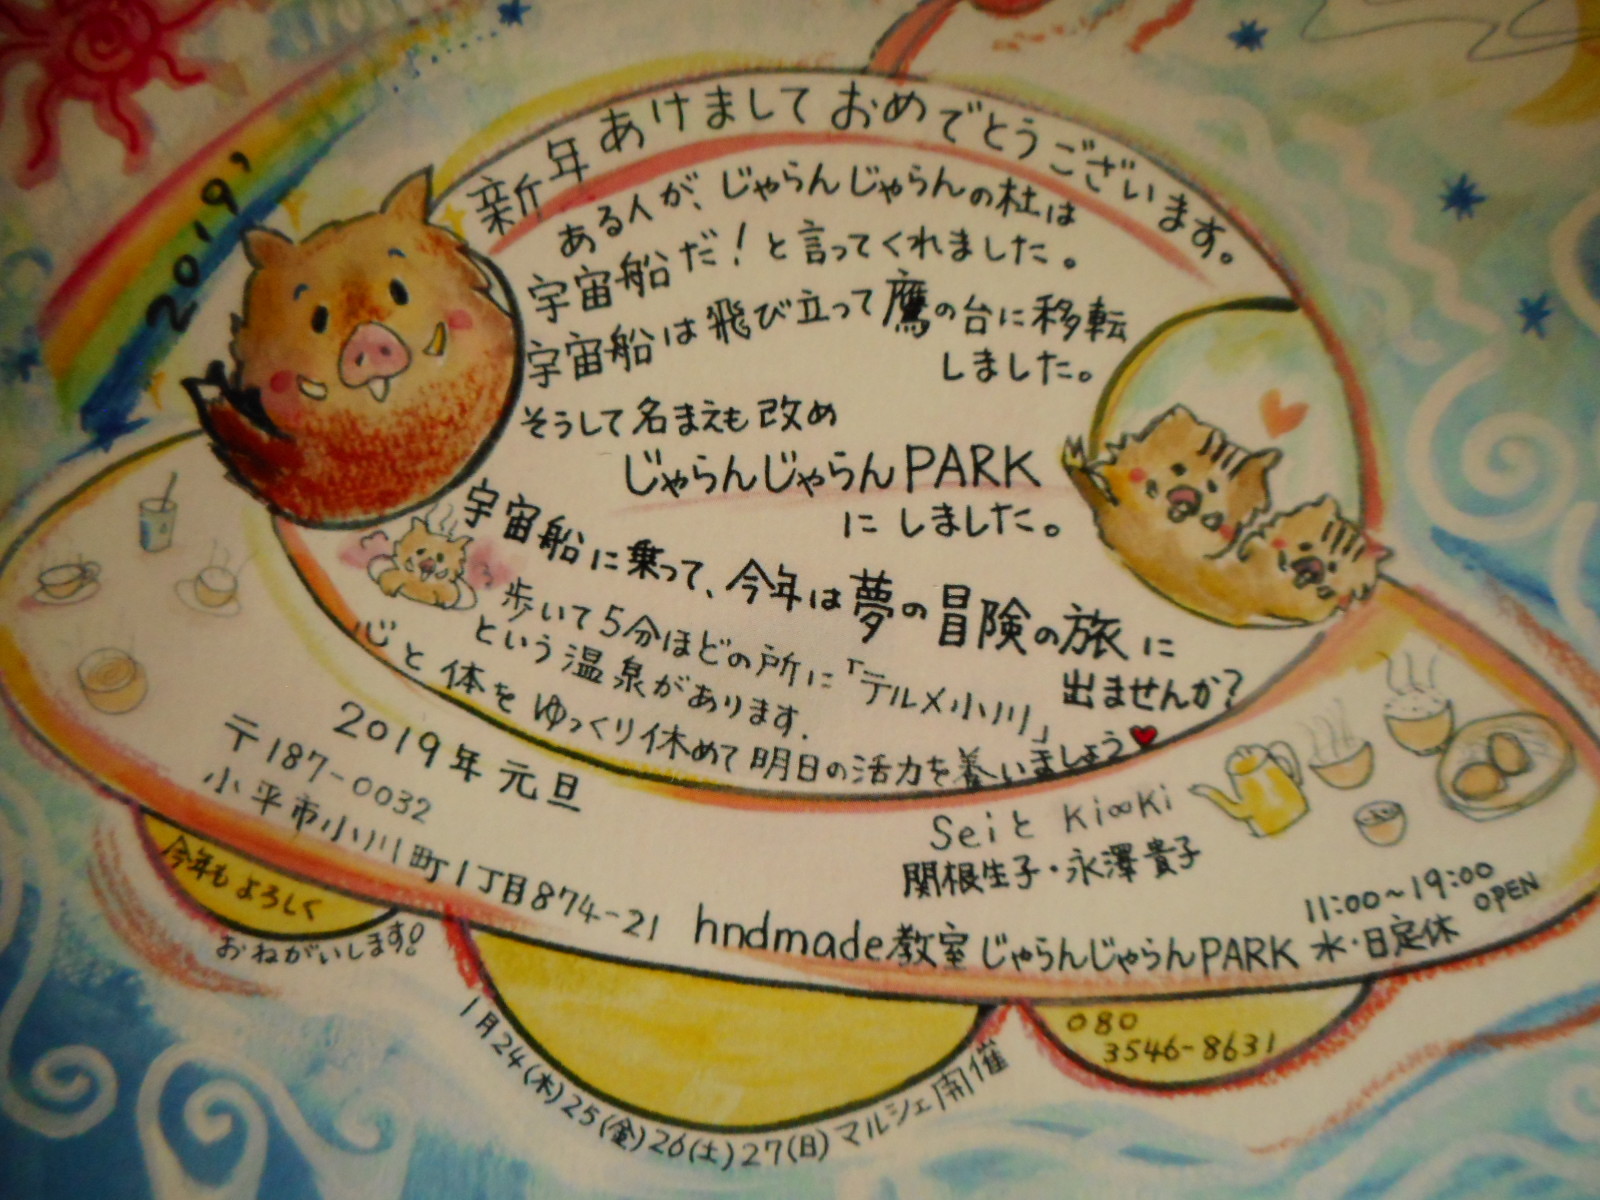 2019'
新年あけましておめでとうございます。
ある人が、じゃらんじゃらんの杜は
宇宙船だ!と言ってくれました。
宇宙船は飛び立って鷹の台に移転
しました。
そうして名まえも改め
じゃらんじゃらんPARK
にしました。
宇宙船に乗って、今年は夢の冒険の旅に
出ませんか?
歩いて5分ほどの所に「テルメ小川」
という温泉があります.
心と体をゆっくり休めて明日の活力を養いましょう♥
2019年元旦
〒187-0032
小平市小川町1丁目874-21
Seiと Ki∞Ki
関根生子・永澤貴子
hndmade教室じゃらんじゃらんPARK
11:00~19:00
OPEN
水・日定休
今年もよろしく
おねがいします!
1月24(木)25(金)26(土)27(日)マルシェ開催
080
3546-8631